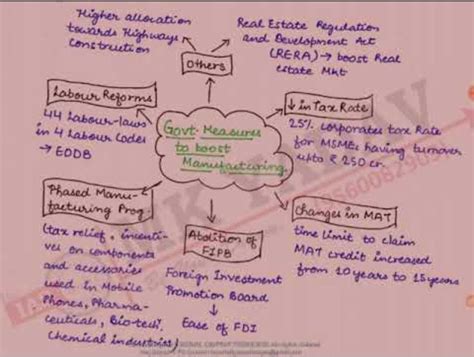 Higher allocation
towards Highways
Construction
Others
Real Estate Regulation
and Development Act
(RERA) → boost Real
estate Mkt
Labour Reforms
44 Labour-laws
in 4 Labour Codes
→ EODB
Govt. Measures
to boost
Manufacturing
↓ in Tax Rate
25% corporates tax Rate
for MSMEs having turnover
upto ₹ 250 cr.
Phased Manu-
facturing Prog.
(tax relief, incenti-
ves on components
and accessories
used in Mobile
Phones, Pharma-
ceuticals, Bio-tech,
Chemical industries)
Abolition of
FIPB
Foreign Investment
Promotion Board
↓
Ease of FDI
Changes in MAT
time limit to claim
MAT credit increased
from 10 years to 15 years